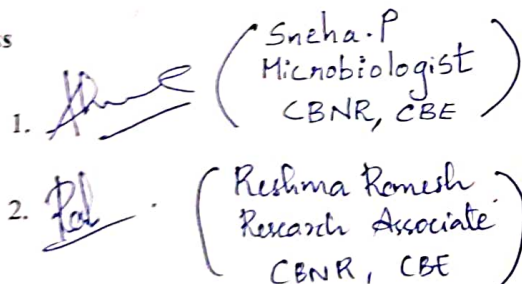 s
1. (Sneha.P
Microbiologist
CBNR, CBE)
2. (Reshma Ramesh
Research Associate
CBNR, CBE)